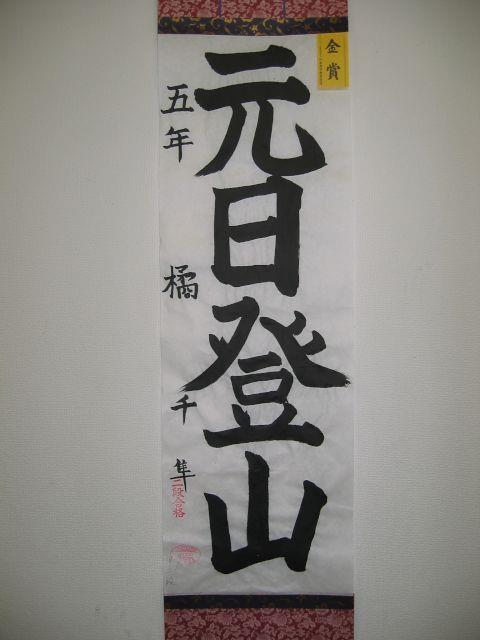 金賞
元日登山
五年 橘 千隼
二段合格